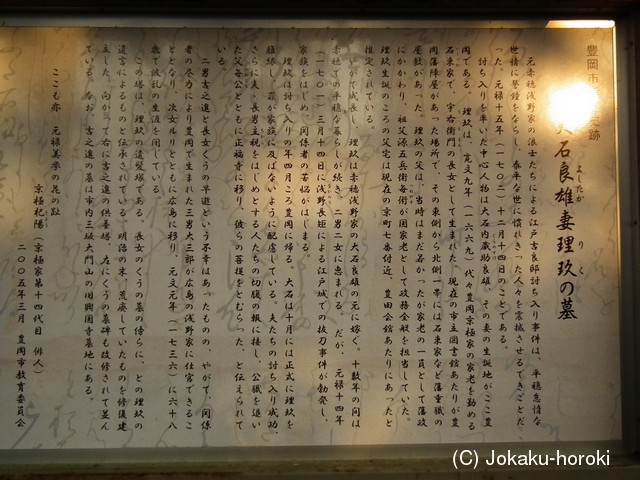 豊岡市
跡
大石良雄妻理玖の墓
よしたか
りく
元赤穂浅野家の浪士たちによる江戸吉良邸討ち入り事件は、平穏怠惰な
世情に警鐘をならし、泰平な世に慣れきった人々を震撼させるできごとだ
った。元禄十五年(一七〇二)十二月十四日のことである。
討ち入りを率いた中心人物は大石内蔵助良雄、その妻の生誕地がここ豊
岡である。理玖は、寛文九年(一六六九)代々豊岡京極家の家老を勤める
石束家で、宇右衛門の長女として生まれた。現在の市立図書館あたりが豊
岡藩陣屋があった場所で、その東側から北側一帯には石束家など藩重職の
屋敷があった。理玖の父は、当時はまだ若かったが家老の一員として藩政
にかかわり、祖父源五兵衛毎術が国家老として政務全般を担当していた。
理玖生誕のころの父宅は現在の京町七番付近、豊田会館あたりにあったと
推定されている。
やがて成長し、理玖は赤穂浅野家の大石良雄の元に嫁ぐ。十数年の間は
赤穂での平穏な暮らしが続き、二男二女に恵まれる。だが、元禄十四年
(一七〇一)三月十四日に浅野長矩による江戸城での抜刀事件が勃発し、
家族をはじめ、関係者の苦悩がはじまる。
理玖は討ち入りの年四月ころ豊岡に帰る。大石は十月には正式に理玖を
離縁し、罪が家族に及ばないように配慮している。夫たちの討ち入り成功、
さらに夫・長男主税をはじめとする人たちの切腹の報に接し、公職を退い
た父母公とともに正福寺に移り、彼らの菩提をとむらった、と伝えられて
いる。
二男吉之進と長女くうの早逝という不幸はあったものの、やがて、関係
者の尽力により豊岡で生まれた三男大三郎が広島の浅野家に仕官できるこ
ととなり、次女ルリとともに広島に移り、元文元年(一七三六)に六十八
歳で波乱の生涯を閉じている。
この塔は、理玖の遺髪塚である。長女のくうの墓の傍らに、との理玖の
遺言によるものと伝承されている。明治の末、荒廃していたものを修復建
立した。向かって右に吉之進の供養塔、左にくうの墓碑も改修されて並ん
でいる。なお、吉之進の墓は市内三坂大門山の旧興国寺墓地にある。
ここも亦 元禄美挙の花の趾
京極杞陽(京極家第十四代目 俳人)
二〇〇五年三月 豊岡市教育委員会
(C) Jokaku-horoki